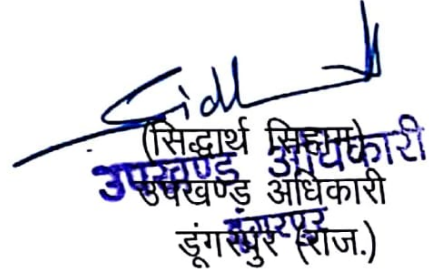 (सिद्धार्थ सिहाग)
उपखण्ड अधिकारी
उपखण्ड अधिकारी
डूंगरपुर
डूंगरपुर (राज.)